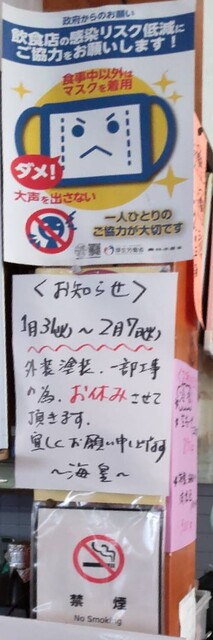 政府からのお願い
飲食店の感染リスク低減に
ご協力をお願いします!
食事中以外は
マスクを着用
ダメ!
大声を出さない
一人ひとりの
ご協力が大切です
厚生労働省
<お知らせ>
1月31(火)~2月7(火)
外装塗装、一部工事
の為、お休みさせて
頂きます。
宜しくお願い申し上げます
~海皇~
禁煙
No Smoking